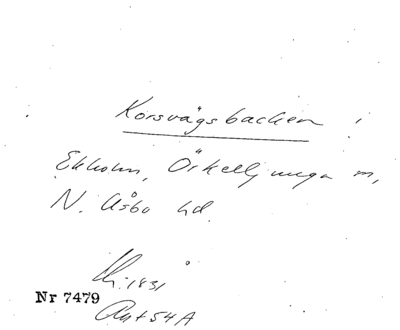 Korsvägsbacken i
Ekholm, Örkelljunga m,
N. Åsbo hd.
1831
Nr 7479
Ant 54 A